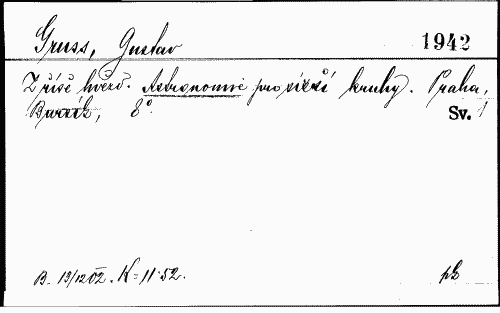 Gruss, Gustav 1942
Z říše hvězd. Astronomie pro širší kruhy. Praha,
Bursík, 8° Sv. 1
B. 13/12 02. K = 11·52. pk